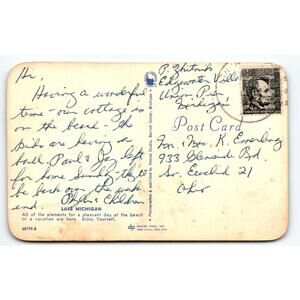 Hi,
Having a wonderful
time - our cottage is
on the beach - the
kids are having a
ball. Paul & Joy left
for home Sunday they'll
be back on the week
end.
Children
LAKE MICHIGAN
All of the elements for a pleasant day at the beach
or a vacation are here. Enjoy Yourself.
68779-B
dp
DEXTER PRESS, INC.
WEST NYACK, NEW YORK
Edgewater
Union Pier
Michigan
Post Card
Mr. Mrs. K.
933 Glenside Rd
So. Euclid 21
Ohio